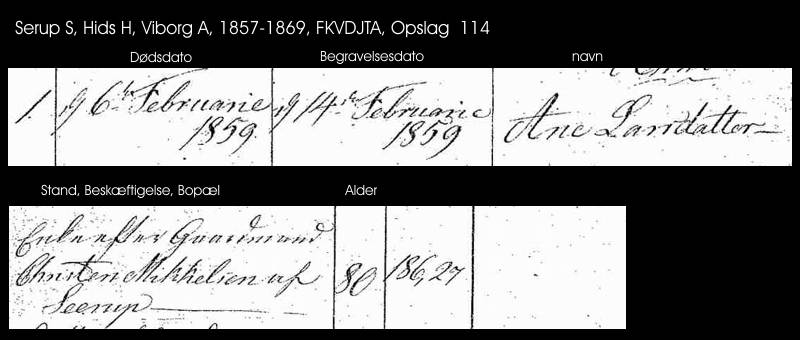 Serup S, Hids H, Viborg A, 1857-1869, FKVDJTA, Opslag 114
Dødsdato Begravelsesdato navn
1. 6te Februarie 14de Februarie
1859. 1859 Ane Larsdatter
Stand, Beskæftigelse, Bopæl Alder
Enke efter Gaardmand
Christen Mikkelsen af 80 186,27
Seerup